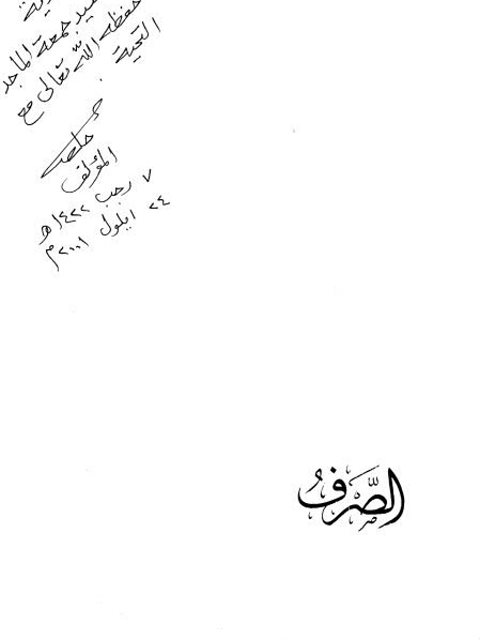 السيد جمعة الماجد
حفظه الله تعالى مع
التحية
المؤلف
٧ رجب ١٤٢٢هـ
٢٤ ايلول ٢٠٠١م
الصَّرفُ